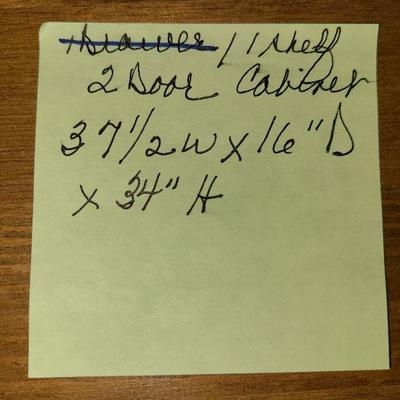 1 Drawer / 1 Shelf
2 Door Cabinet
37 1/2 W x 16" D
x 34" H